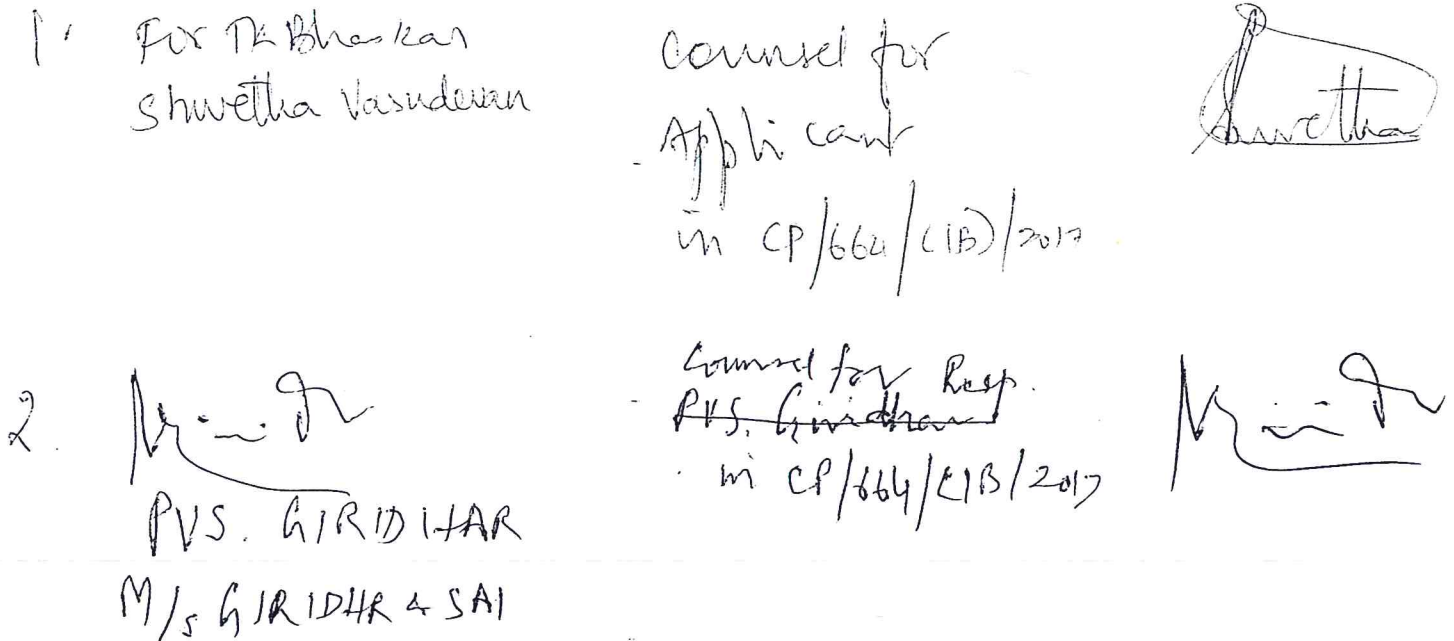 1. For TK Bhaskar
Shwetha Vasudevan
Counsel for
- Applicant
in CP/664/(IB)/2017
Shwetha
2.
PVS. GIRIDHAR
M/s GIRIDHR & SAI
- Counsel for Resp.
PVS. Giridhar
in CP/664/(IB/2017